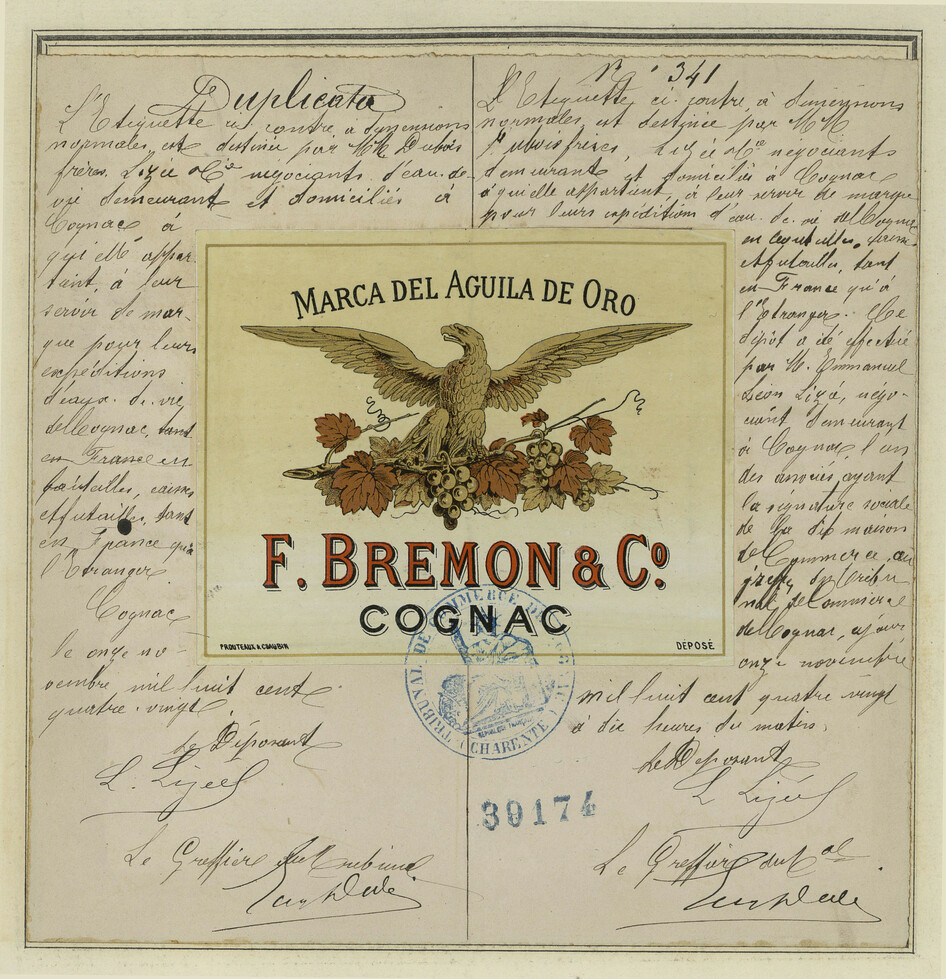 Duplicata
L'Etiquette ci contre, à dimensions
normales, est destinée par MM Dubois
frères, Lizée & Cie négociants d'eau-de-
vie demeurant et domiciliés à
Cognac à
qui elle appar-
tient, à leur
servir de mar-
que pour leurs
expéditions
d'eaux-de-vie
de Cognac, tant
en France en
bouteilles, caisses
et futailles, tant
en France qu'à
l'Etranger
Cognac
le onze no-
vembre, mil huit cent
quatre-vingt.
Le Déposant
L. Lizée
Le Greffier du Tribunal
No 341
L'Etiquette ci-contre à dimensions
normales, est destinée par MM
Dubois frères, Lizée & Cie négociants
demeurant et domiciliés à Cognac
à qui elle appartient, à leur servir de marque
pour leurs expéditions d'eau-de-vie de Cognac
en bouteilles, caisses
et futailles, tant
en France qu'à
l'Etranger. Ce
dépôt a été effectué
par M. Emmanuel
Léon Lizée, négo-
ciant demeurant
à Cognac, l'un
des associés, ayant
la signature sociale
de la dite maison
de Commerce, au
greffe du Tribu-
nal de Commerce
de Cognac, ce jour
onze novembre
mil huit cent quatre-vingt
à dix heures du matin.
Le Déposant
L. Lizée
Le Greffier du Cal
MARCA DEL AGUILA DE ORO
F. BREMON & Co.
COGNAC
PROUTEAUX & CHAUBIN
DÉPOSÉ
TRIBUNAL DE COMMERCE DE COGNAC
REPUBLIQUE FRANÇAISE
CHARENTE
39174